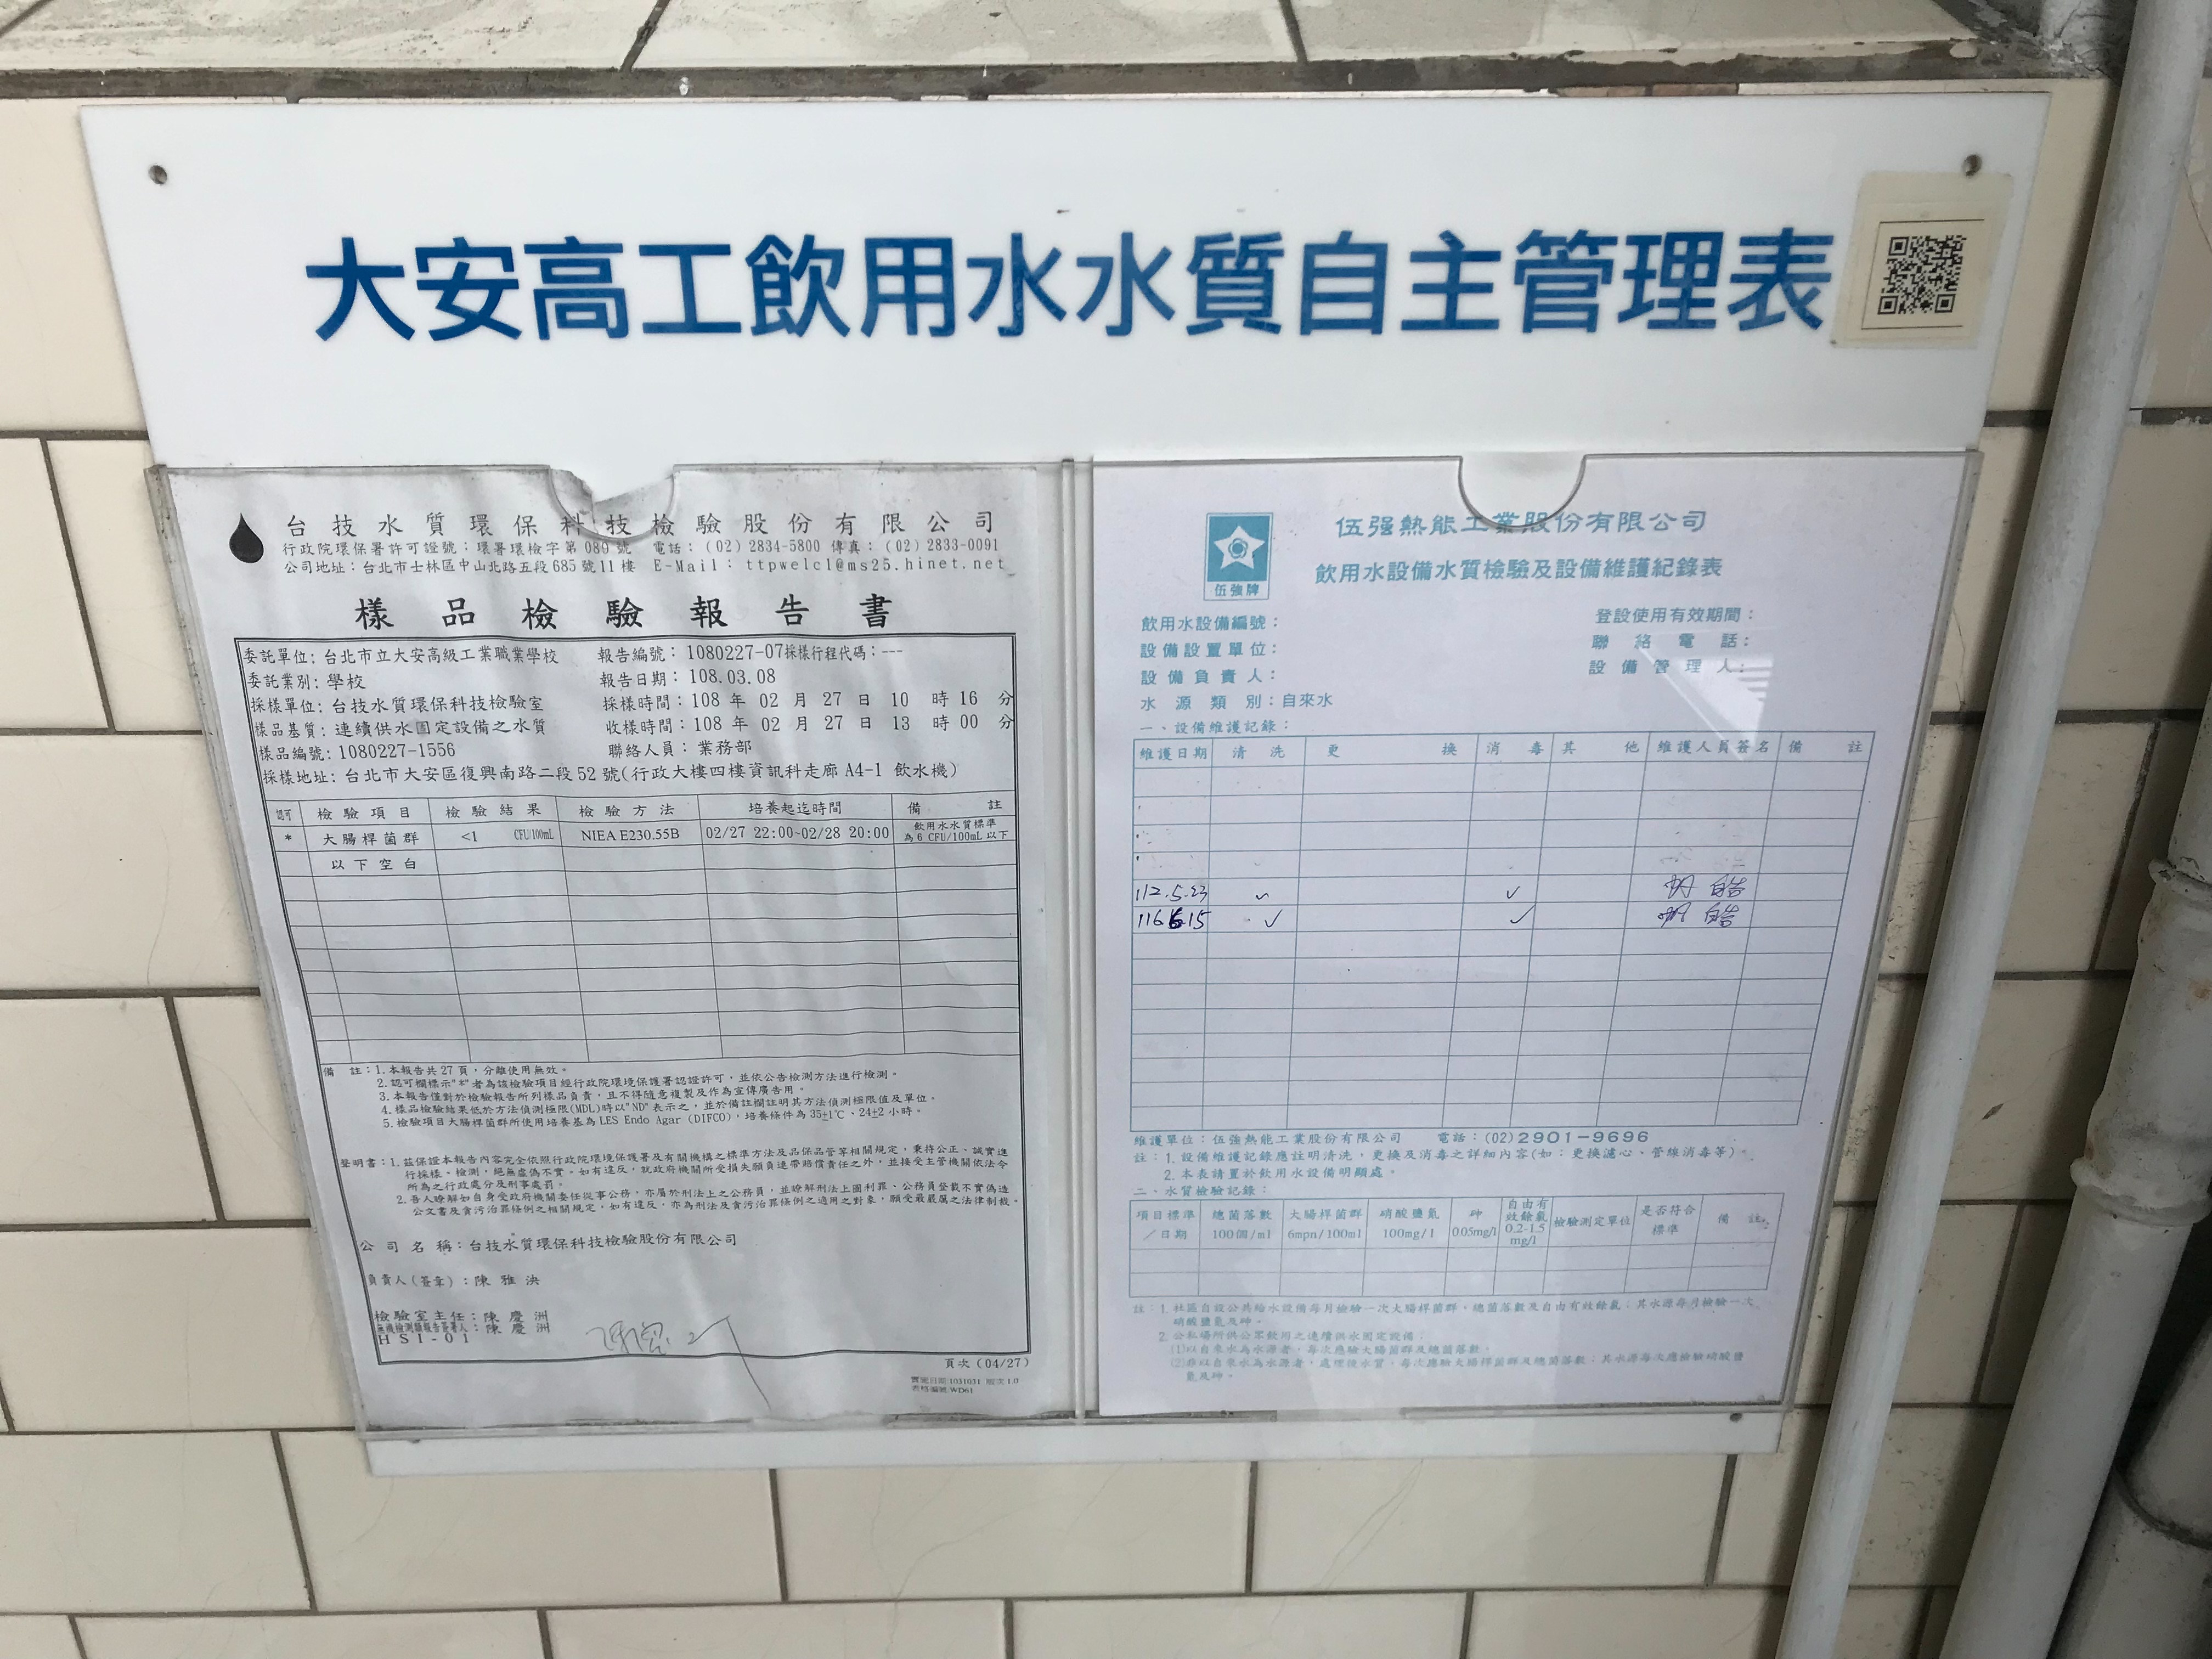 大安高工飲用水水質自主管理表
台技水質環保科技檢驗股份有限公司
行政院環保署許可證號：環署環檢字第 089 號 電話：(02) 2834-5800 傳真：(02) 2833-0091
公司地址：台北市士林區中山北路五段 685 號 11 樓 E-Mail： ttpwelcl@ms25.hinet.net
樣品檢驗報告書
委託單位：台北市立大安高級工業職業學校 報告編號：1080227-07 採樣行程代碼：---
委託業別：學校 報告日期：108.03.08
採樣單位：台技水質環保科技檢驗室 採樣時間：108 年 02 月 27 日 10 時 16 分
樣品基質：連續供水固定設備之水質 收樣時間：108 年 02 月 27 日 13 時 00 分
樣品編號：1080227-1556 聯絡人員：業務部
採樣地址：台北市大安區復興南路二段 52 號(行政大樓四樓資訊科走廊 A4-1 飲水機)
認可 檢驗項目 檢驗結果 檢驗方法 培養起迄時間 備註
* 大腸桿菌群 <1 CFU/100mL NIEA E230.55B 02/27 22:00~02/28 20:00 飲用水水質標準為 6 CFU/100mL 以下
以下空白
備 註：1.本報告共 27 頁，分離使用無效。
2.認可欄標示"*"者為該檢驗項目經行政院環境保護署認證許可，並依公告檢測方法進行檢測。
3.本報告僅對於檢驗報告所列樣品負責，且不得隨意複製及作為宣傳廣告用。
4.樣品檢驗結果低於方法偵測極限(MDL)時以"ND"表示之，並於備註欄註明其方法偵測極限值及單位。
5.檢驗項目大腸桿菌群所使用培養基為 LES Endo Agar (DIFCO)，培養條件為 35±1℃、24±2 小時。
聲明書：1.茲保證本報告內容完全依照行政院環境保護署及有關機構之標準方法及品保品管等相關規定，秉持公正、誠實進
行採樣、檢測，絕無虛偽不實。如有違反，就政府機關所受損失願負連帶賠償責任之外，並接受主管機關依法令
所為之行政處分及刑事處罰。
2.吾人瞭解如自身受政府機關委任從事公務，亦屬於刑法上之公務員，並瞭解刑法上圖利罪、公務員登載不實偽造
公文書及貪污治罪條例之相關規定，如有違反，亦為刑法及貪污治罪條例之適用之對象，願受最嚴厲之法律制裁。
公司名稱：台技水質環保科技檢驗股份有限公司
負責人(簽章)：陳雅泱
檢驗室主任：陳慶洲
無機檢測類報告簽署人：陳慶洲
HSI-01
頁次 (04/27)
實施日期:1031031 版次:1.0
表格編號:WD61
伍強牌
伍强熱能工業股份有限公司
飲用水設備水質檢驗及設備維護紀錄表
飲用水設備編號： 登設使用有效期間：
設備設置單位： 聯絡電話：
設備負責人： 設備管理人：
水源類別：自來水
一、設備維護記錄：
維護日期 清洗 更換 消毒 其他 維護人員簽名 備註
112.5.23 ✓ ✓
✓ ✓
維護單位：伍強熱能工業股份有限公司 電話：(02)2901-9696
註：1.設備維護記錄應註明清洗，更換及消毒之詳細內容(如：更換濾心、管線消毒等)。
2.本表請置於飲用水設備明顯處。
二、水質檢驗記錄：
項目標準／日期 總菌落數 100個/ml 大腸桿菌群 6mpn/100ml 硝酸鹽氮 100mg/l 砷 0.05mg/l 自由有效餘氯 0.2-1.5 mg/l 檢驗測定單位 是否符合標準 備註
註：1.社區自設公共給水設備每月檢驗一次大腸桿菌群，總菌落數及自由有效餘氯；其水源每月檢驗一次
硝酸鹽氮及砷。
2.公私場所供公眾飲用之連續供水固定設備：
(1)以自來水為水源者，每次應驗大腸菌群及總菌落數。
(2)非以自來水為水源者，處理後水質，每次應驗大腸桿菌群及總菌落數；其水源每次應檢驗硝酸鹽
氮及砷。